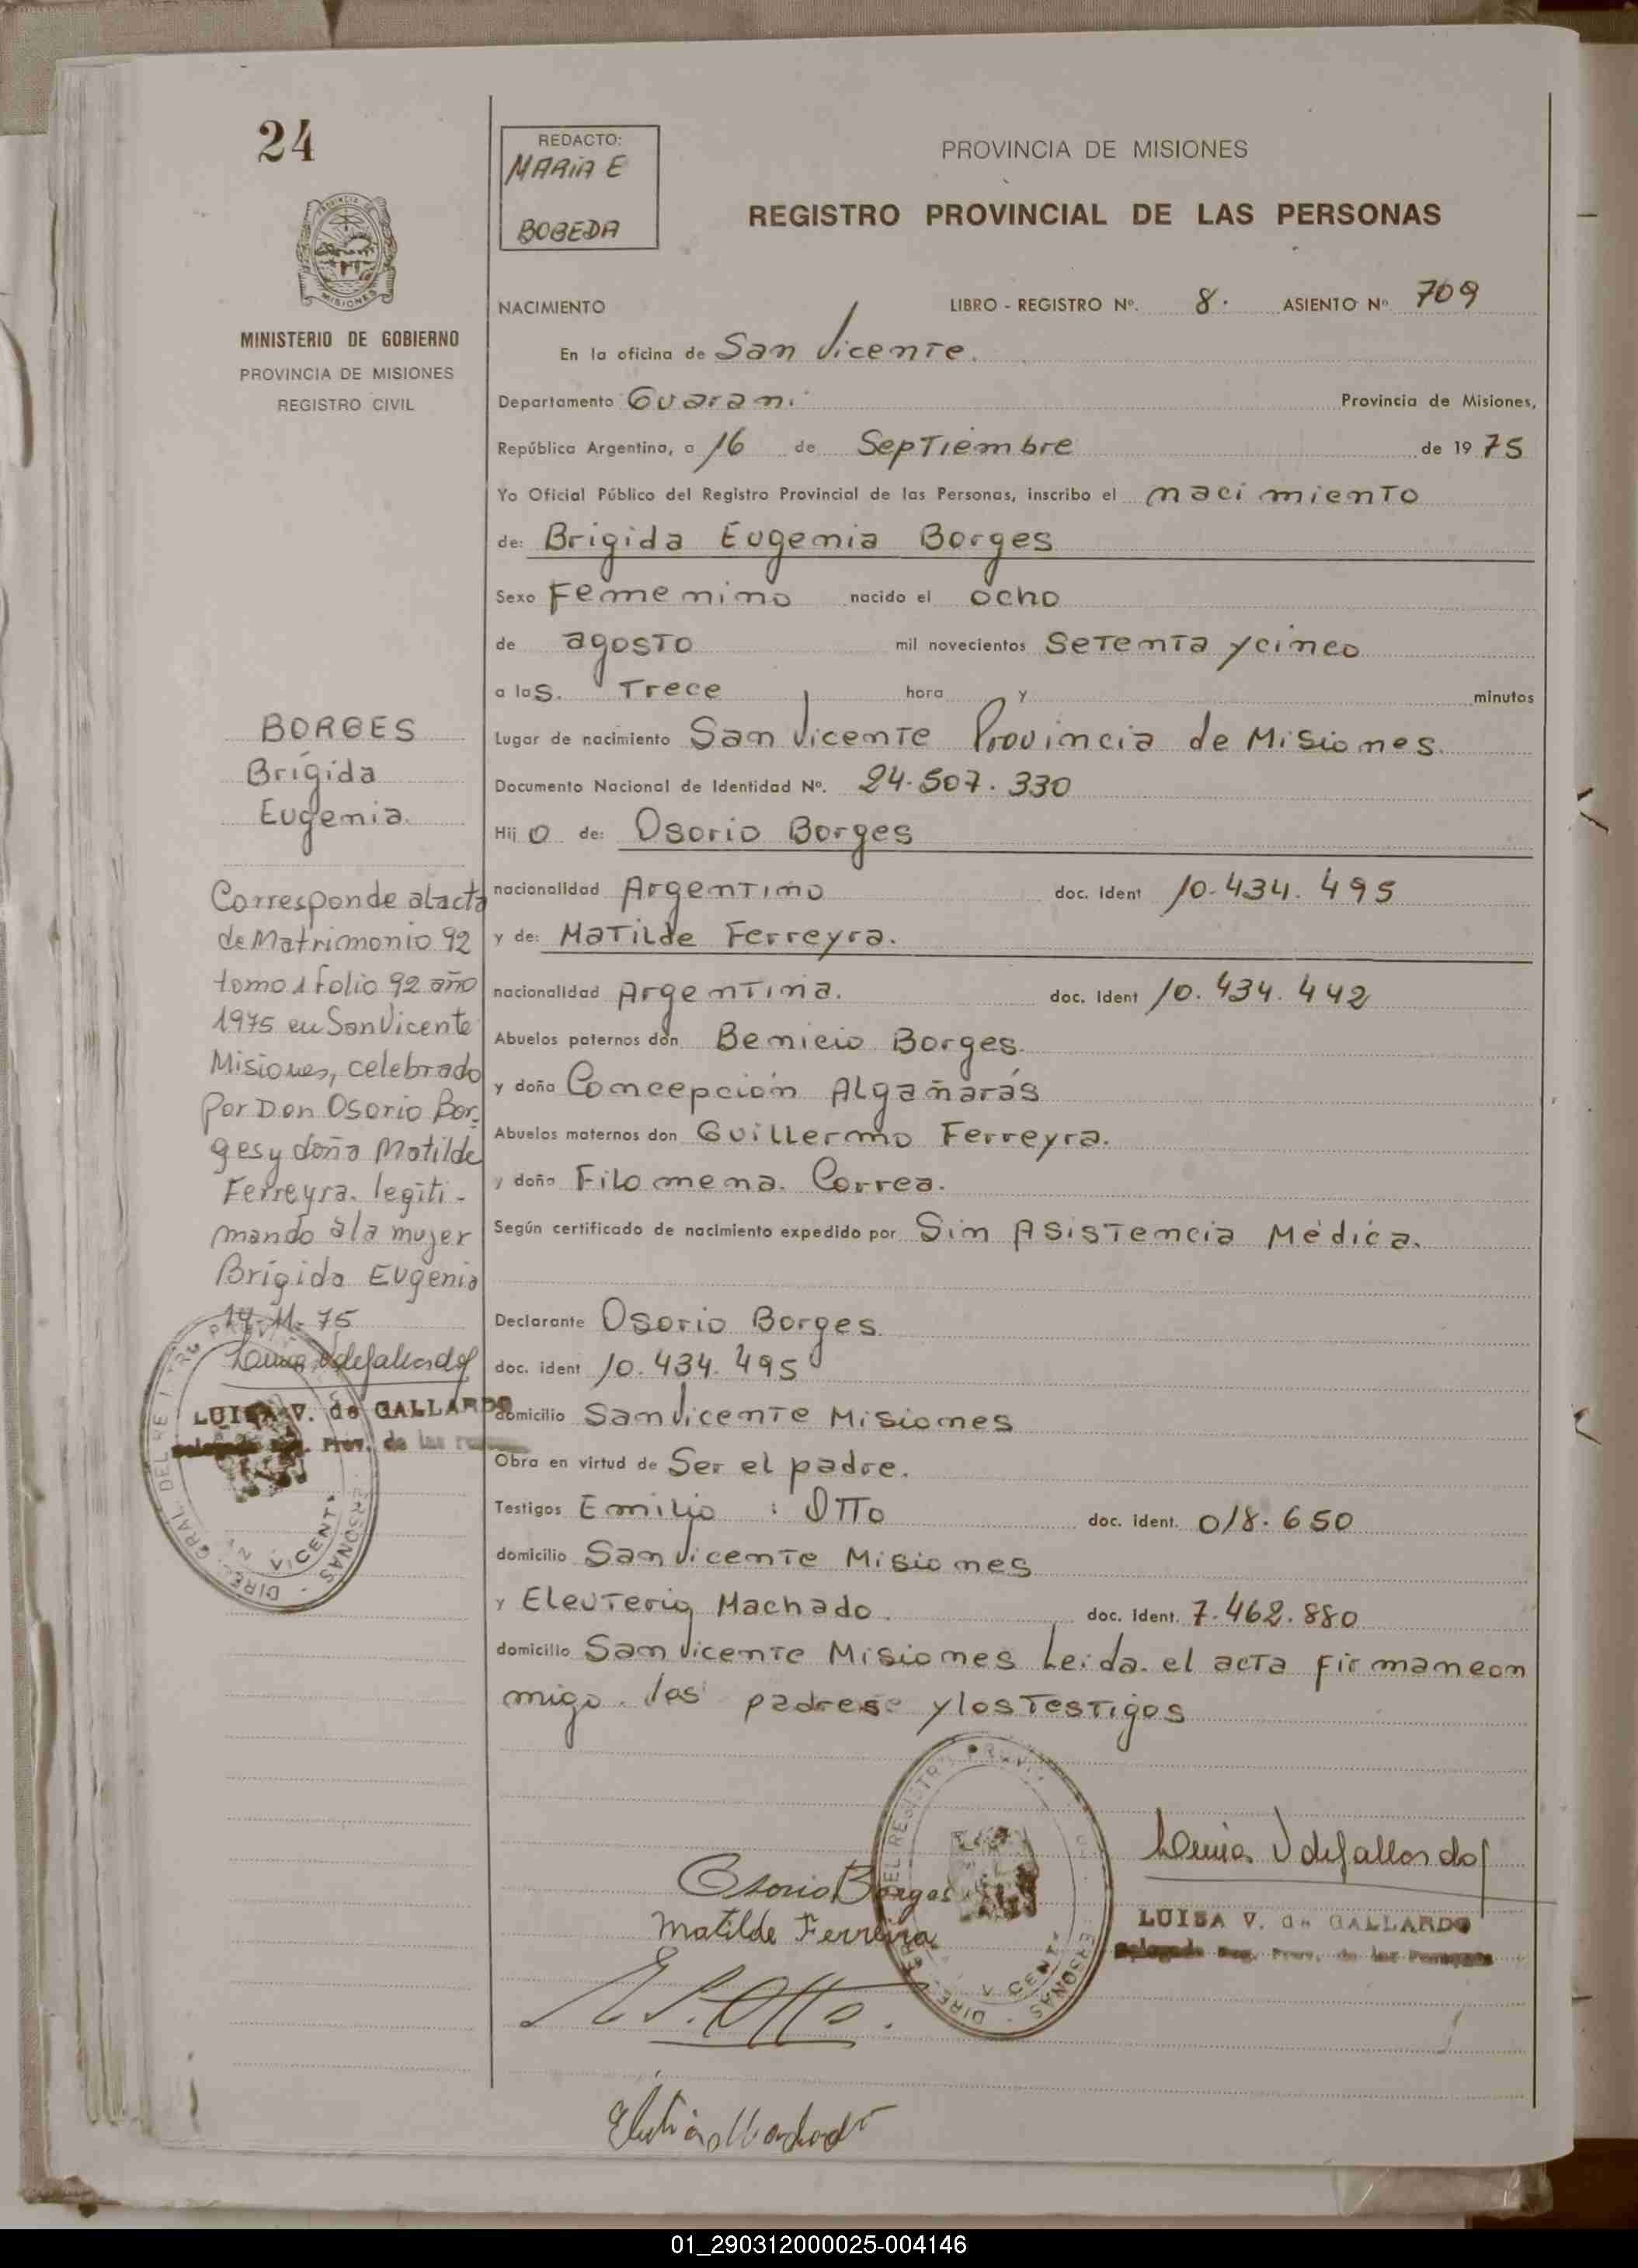 24
REDACTO:
MARIA E
BOBEDA
PROVINCIA DE MISIONES
REGISTRO PROVINCIAL DE LAS PERSONAS
MISIONES
MINISTERIO DE GOBIERNO
PROVINCIA DE MISIONES
REGISTRO CIVIL
NACIMIENTO LIBRO - REGISTRO Nº. 8. ASIENTO Nº 709
En la oficina de San Vicente.
Departamento Guarani Provincia de Misiones,
República Argentina, a 16 de Septiembre de 1975
Yo Oficial Público del Registro Provincial de las Personas, inscribo el nacimiento
de: Brigida Eugenia Borges
Sexo Femenino nacido el ocho
de agosto mil novecientos Setenta y cinco
a las. Trece hora y minutos
Lugar de nacimiento San Vicente Provincia de Misiones.
Documento Nacional de Identidad Nº. 24.507.330
Hijo de: Osorio Borges
nacionalidad Argentino doc. ident 10.434.495
y de: Matilde Ferreyra.
nacionalidad Argentina. doc. ident 10.434.442
Abuelos paternos don Benicio Borges.
y doña Concepción Algañarás
Abuelos maternos don Guillermo Ferreyra.
y doña Filomena. Correa.
Según certificado de nacimiento expedido por Sin Asistencia Médica.
Declarante Osorio Borges
doc. ident 10.434.495
domicilio San Vicente Misiones
Obra en virtud de Ser el padre.
Testigos Emilio : Otto doc. ident. 018.650
domicilio San Vicente Misiones
y Eleuterio Machado. doc. ident. 7.462.880
domicilio San Vicente Misiones Leida. el acta firman con
migo. los padres y los Testigos
BORGES
Brígida
Eugenia.
Corresponde al acta
de Matrimonio 92
tomo 1 folio 92 año
1975 en San Vicente
Misiones, celebrado
Por Don Osorio Bor-
ges y doña Matilde
Ferreyra. legiti-
mando a la mujer
Brígida Eugenia
14-11-75
Luisa V de Gallardo
LUISA V. de GALLARDO
Prov. de las
DIRE. GRAL DEL
VICENTE
Osorio Borges
Matilde Ferreira
E P. Otto.
Luisa V de Gallardo
LUISA V. de GALLARDO
Delegada Reg. Prov. de las Personas
01_290312000025-004146